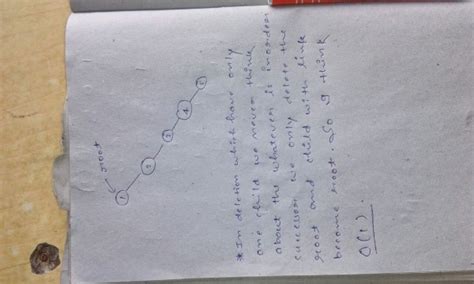 root
1
2
3
4
5
* In deletion which have only
one child we never think
about the whatever is inorder
successor we only delete the
root and child with link
become root. So I think
O(1).